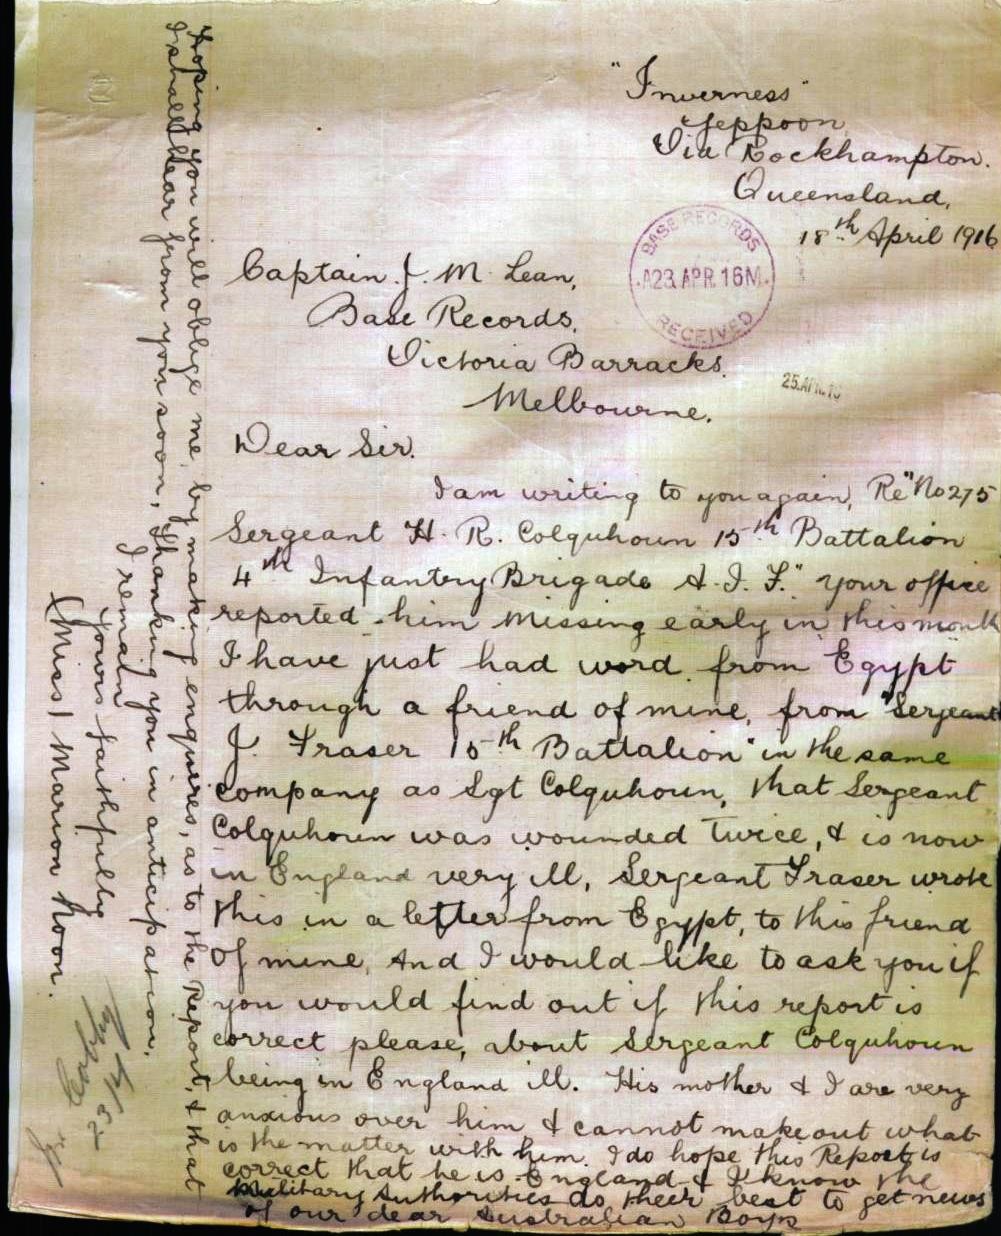 "Inverness"
Yeppoon,
Via Rockhampton.
Queensland,
18th April 1916
BASE RECORDS
A23 APR.16M.
RECEIVED
25.APR.16
Captain. J. M. Lean,
Base Records,
Victoria Barracks.
Melbourne.
Dear Sir.
I am writing to you again, Re "No 275
Sergeant H. R. Colquhoun 15th Battalion
4th Infantry Brigade A. I. F." your office
reported him missing early in this month
I have just had word from Egypt
through a friend of mine, from "Sergeant
J. Fraser 15th Battalion" in the same
company as Sgt Colquhoun, that Sergeant
Colquhoun was wounded twice, & is now
in England very ill, Sergeant Fraser wrote
this in a letter from Egypt, to this friend
of mine, And I would like to ask you if
you would find out if this report is
correct please, about Sergeant Colquhoun
being in England ill. His mother & I are very
anxious over him & cannot make out what
is the matter with him. I do hope this Report is
correct that he is England & I know the
Military Authorities do their best to get news
of our dear Australian Boys
Hoping you will oblige me, by making enquires, as to the Report, & that
I shall hear from you soon, Thanking you in anticipation,
I remain
yours faithfully
(Miss) Marion Noon.
23/4